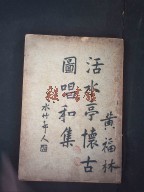 活水亭懷古
圖唱和集
水竹邨人
黃福林